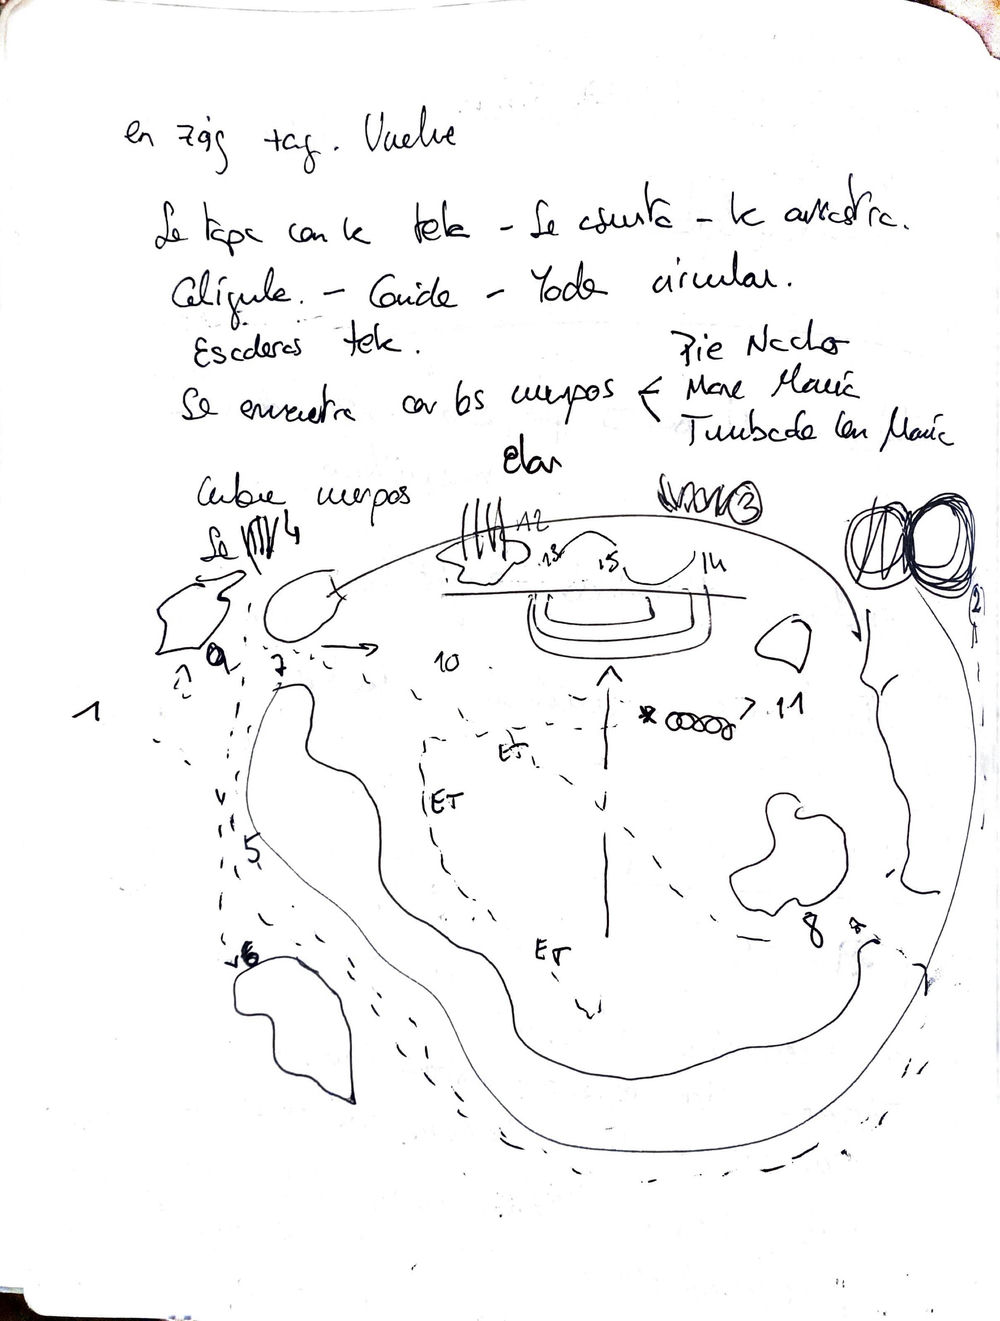 en zig tag. Vuelve
Se tapa con la tela - Se asusta - la arrastra.
Calígula. - Covide - Yoda circular.
Escaleras tela.
Pie Nacho
Se encuentra con los cuerpos < Mane María
Tumbada Con María
Elan
Cubre cuerpos
Se 4
12
3
13
15
14
2
9
7
10
1
11
ET
ET
5
8
ET
6